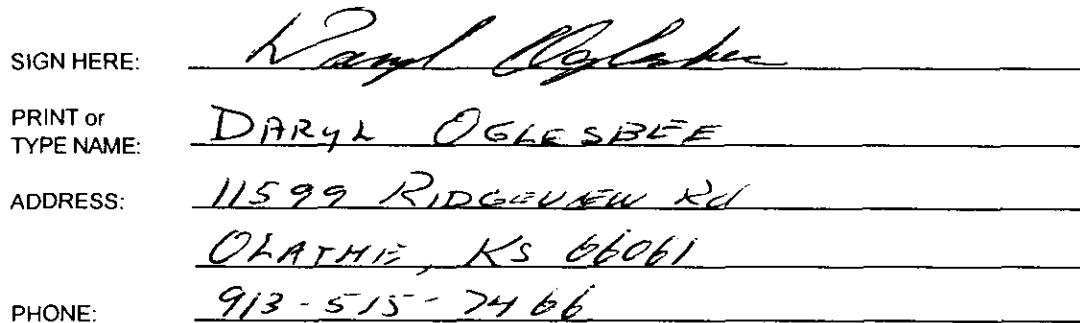 SIGN HERE: Daryl Oglesbee
PRINT or
TYPE NAME: DARYL OGLESBEE
ADDRESS: 11599 RIDGEVIEW Rd
OLATHE, KS 66061
PHONE: 913-515-7466